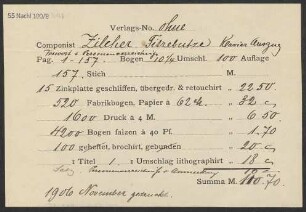 55 Nachl 100/B
Verlags-No. ohne
Componist Zilcher Fitzebutze Klavier Auszug
Pag. 1-157. Bogen 10½ Umschl. 100 Auflage
157. Stich M.
15 Zinkplatte geschliffen, übergedr. & retouchirt " 22.50
520 Fabrikbogen, Papier à 62 M. " 32 —
1600 Druck à 4 M. " 6.50
4200 Bogen falzen à 40 Pf. " 1.70
100 geheftet, brochirt, gebunden " 20 —
: Titel 1 : Umschlag lithographirt " 18 —
Summa M. 70
1906 November gedruckt.